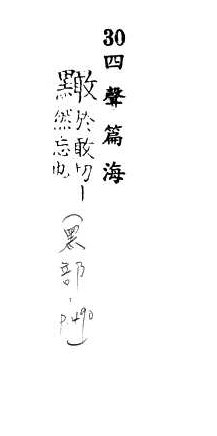 30四聲篇海
於敢切丨
然忘也
(黑部, p.490)